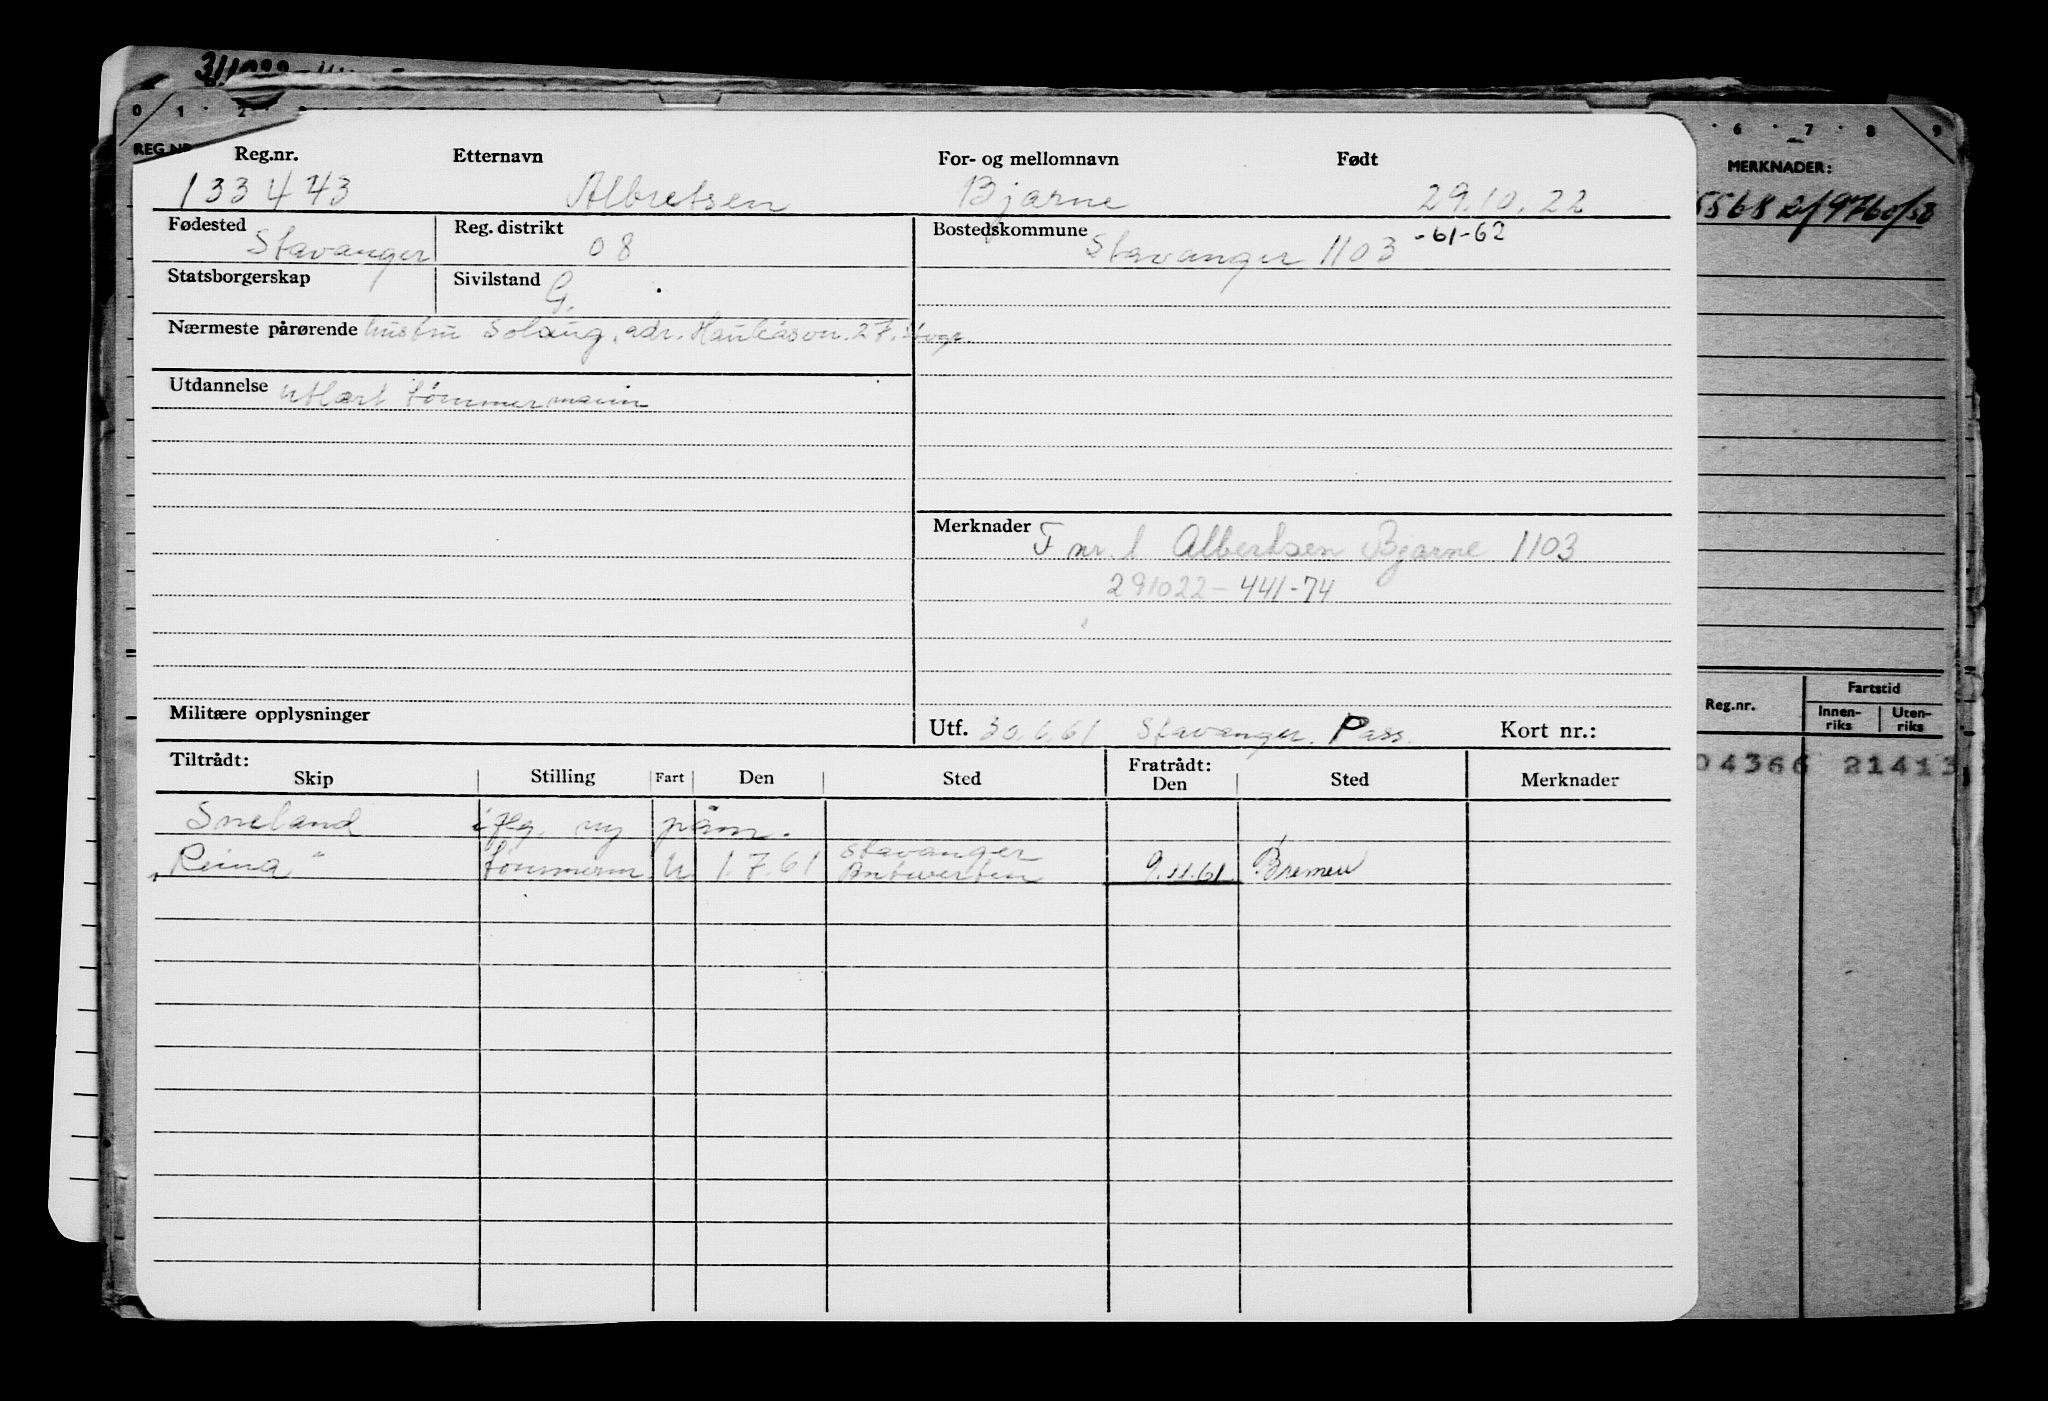 0 1 2 6 7 8 9
REG.NR MERKNADER:
Reg.nr. Etternavn For- og mellomnavn Født
133443 Albretsen Bjarne 29.10.22
5568 2/9760/52
Fødested Stavanger Reg. distrikt 08 Bostedskommune Stavanger 1103 -61-62
Statsborgerskap Sivilstand G.
Nærmeste pårørende hustru Solaug, adr. Haukåsvn. 27. Stvgr.
Utdannelse utlært tømmermann
Merknader F nr. l Albertsen Bjarne 1103
291022-441-74
Militære opplysninger Utf. 30.6.61 Stavanger. Pass. Kort nr.:
Reg.nr. Fartstid
Innen-riks Uten-riks
04366 21413
Tiltrådt: Fratrådt:
Skip Stilling Fart Den Sted Den Sted Merknader
Sneland iflg. ny påm.
Reina tømmerm. U. 1.7.61 Stavanger
Antwerten 9.11.61. Bremen